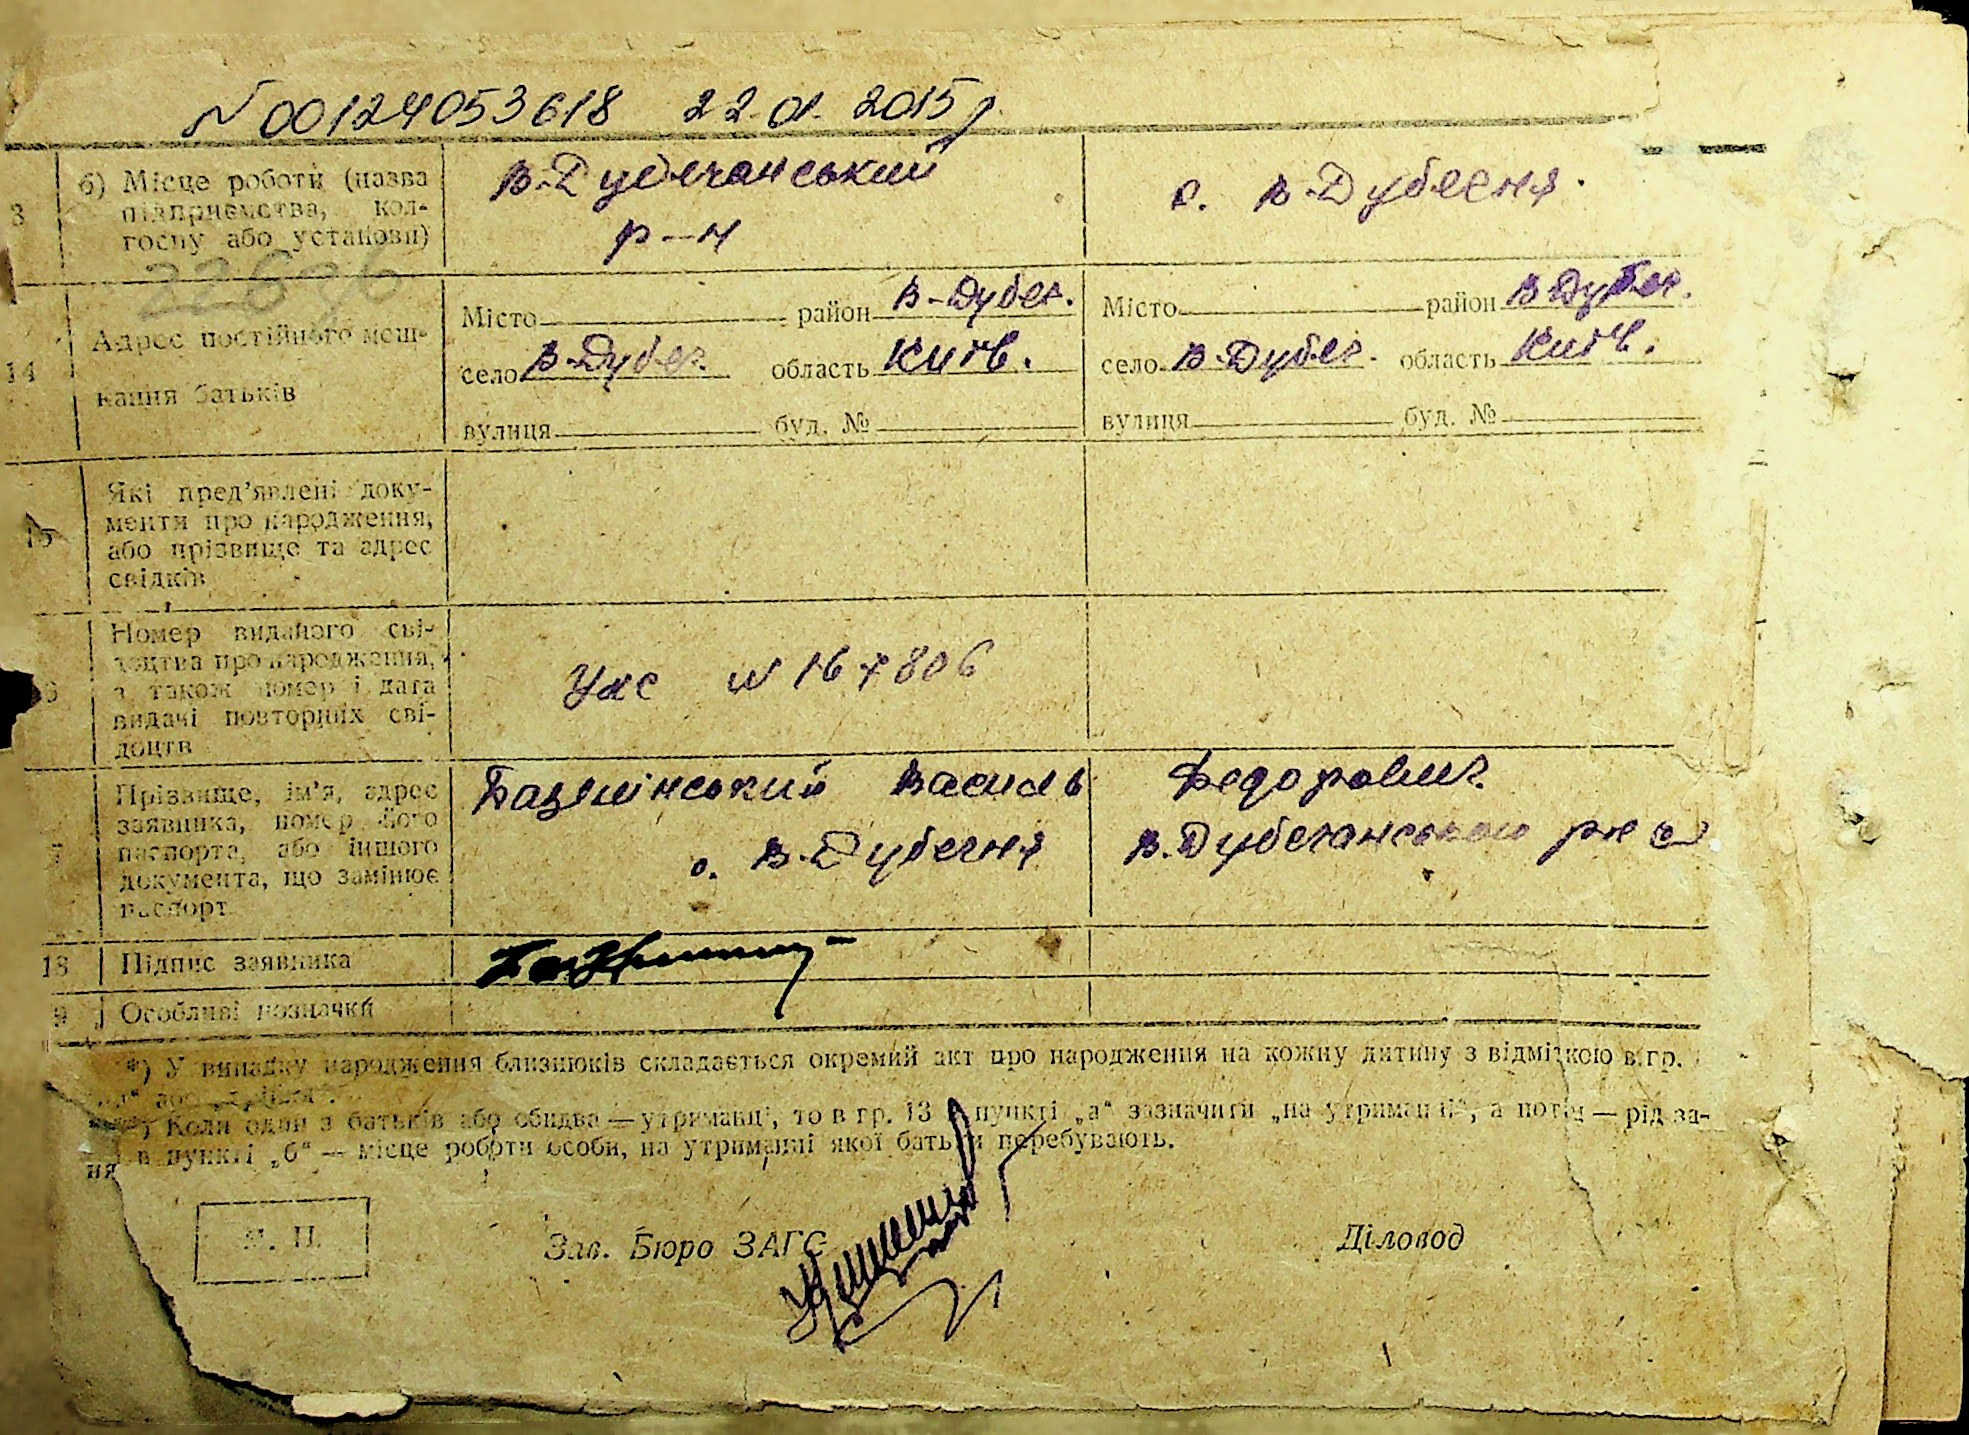 N 00124053618 22.01.2015р
3 б) Місце роботи (назва підприємства, колгоспу або установи)
В-Дубечанський
р-н
с. В-Дубечня.
22696
14 Адрес постійного мешкання батьків
Місто район В-Дубеч.
село В-Дубеч. область Київ.
вулиця буд. №
Місто район В Дубеч.
село В-Дубеч. область Київ.
вулиця буд. №
15 Які пред'явлені документи про народження,
або прізвище та адрес
свідків
Номер виданого свідоцтва про народження,
а також номер і дата
видачі повторних свідоцтв
N 167806
Прізвище, ім'я, адрес
заявника, номер його
паспорта, або іншого
документа, що замінює
паспорт
Василь Федорович
с. В-Дубечня В.Дубечанського р-н
18 Підпис заявника
9 Особливі позначки
*) У випадку народження близнюків складається окремий акт про народження на кожну дитину з відміткою в гр.
або
**) Коли один з батьків або обидва — утриманці, то в гр. 13 пункті „а" зазначити „на утриманні", а потім — рід за-
ня в пункті „б" — місце роботи особи, на утриманні якої батьки перебувають.
М. П.
Зав. Бюро ЗАГС
Діловод